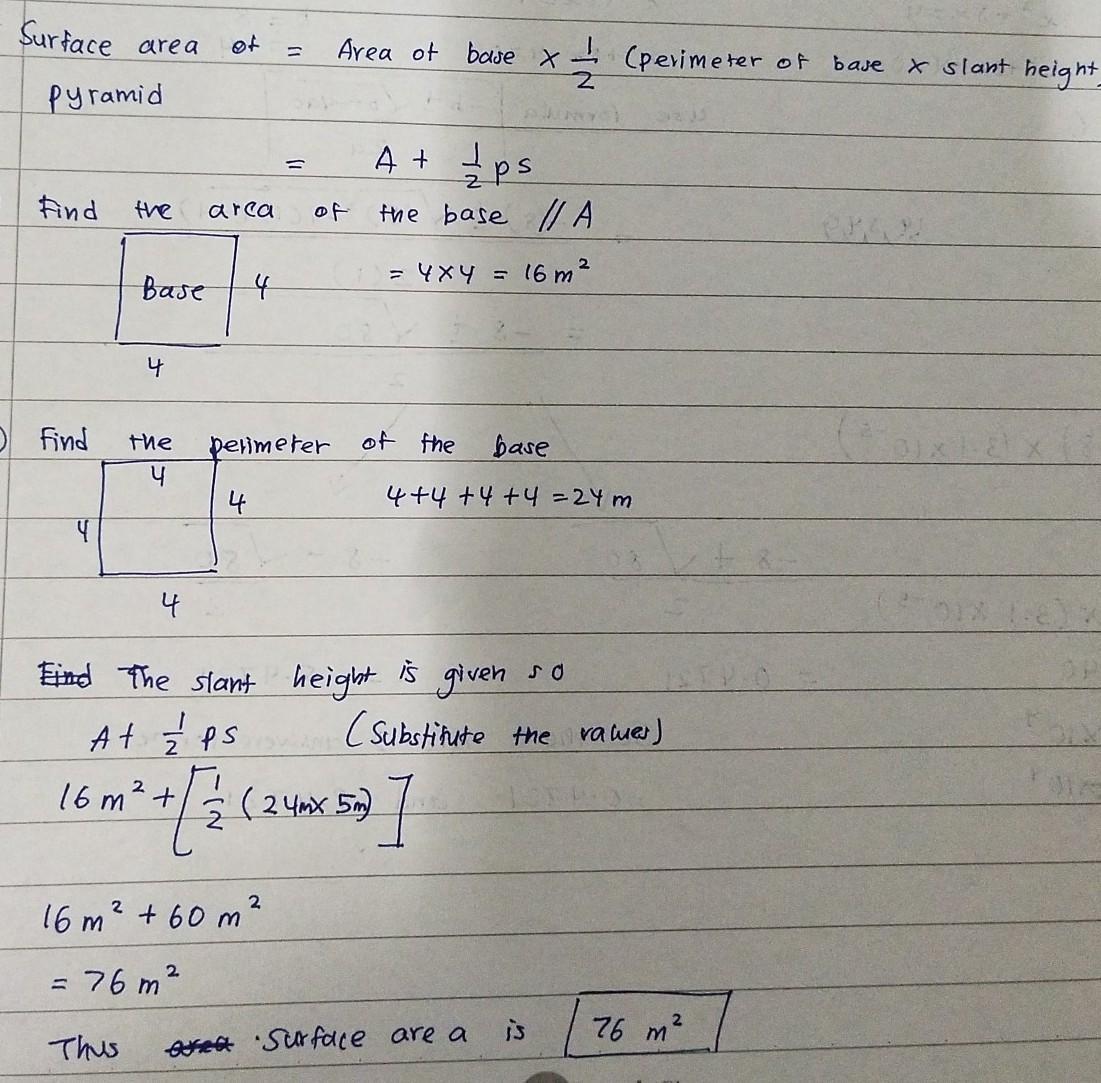 Surface area of = Area of base × 1/2 (perimeter of base × slant height)
pyramid
= A + 1/2 ps
Find the area of the base // A
Base 4 = 4×4 = 16 m²
4
Find the perimeter of the base
4
4 4 4+4+4+4 = 24 m
4
Find The slant height is given so
A + 1/2 ps (Substitute the values)
16 m² + [1/2 (24m× 5m)]
16 m² + 60 m²
= 76 m²
Thus area surface area is 76 m²